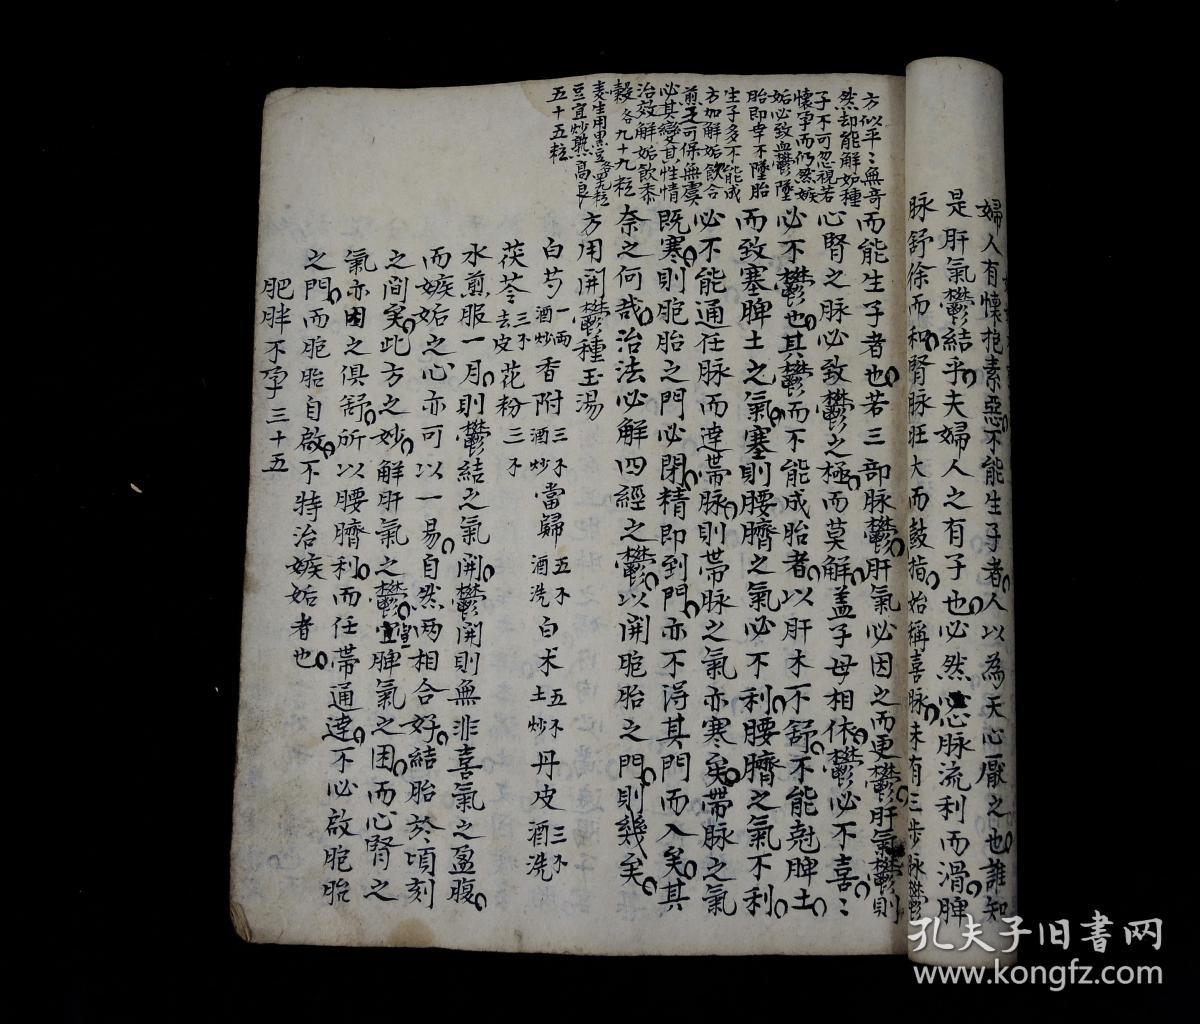 婦人有懷抱素惡不能生子者人以為天心厭之也誰知
是肝氣鬱結乎夫婦人之有子也必然心脉流利而滑脾
脉舒徐而和腎脉旺大而鼓指始稱喜脉未有三步脉鬱
而能生子者也若三部脉鬱肝氣必因之而更鬱肝氣鬱則
心腎之脉必致鬱之極而莫解蓋子母相依鬱必不喜〻
必不鬱也其鬱而不能成胎者以肝木不舒不能尅脾土
而致塞脾土之氣塞則腰臍之氣必不利腰臍之氣不利
必不能通任脉而達帶脉則帶脉之氣亦寒矣帶脉之氣
既寒則胞胎之門必閉精即到門亦不淂其門而入矣其
奈之何哉治法必解四經之鬱以開胞胎之門則幾矣
方用開鬱種玉湯
白芍一兩酒炒香附三不酒炒當歸五不酒洗白术五不土炒丹皮三不酒洗
茯苓三不去皮花粉三不
水煎服一月則鬱結之氣開鬱開則無非喜氣之盈腹
而嫉妬之心亦可以一易自然两相合好結胎於頃刻
之間矣此方之妙解肝氣之鬱宣脾氣之困而心腎之
氣亦因之俱舒所以腰臍利而任帶通達不必啟胞胎
之門而胞胎自啟不特治嫉妬者也
肥胖不孕三十五
方似平〻無奇
然却能解如種
子不可忽視若
懷孕而仍然嫉
妬必致血鬱墜
胎即幸不墜胎
生子多不能成
方加解妬飲合
煎之可保無虞
必其變其性情
治效解妬飲黍
穀各九十九粒
麦生用黑豆各
豆宜炒熟高良
五十五粒
孔夫子旧書网
www.kongfz.com